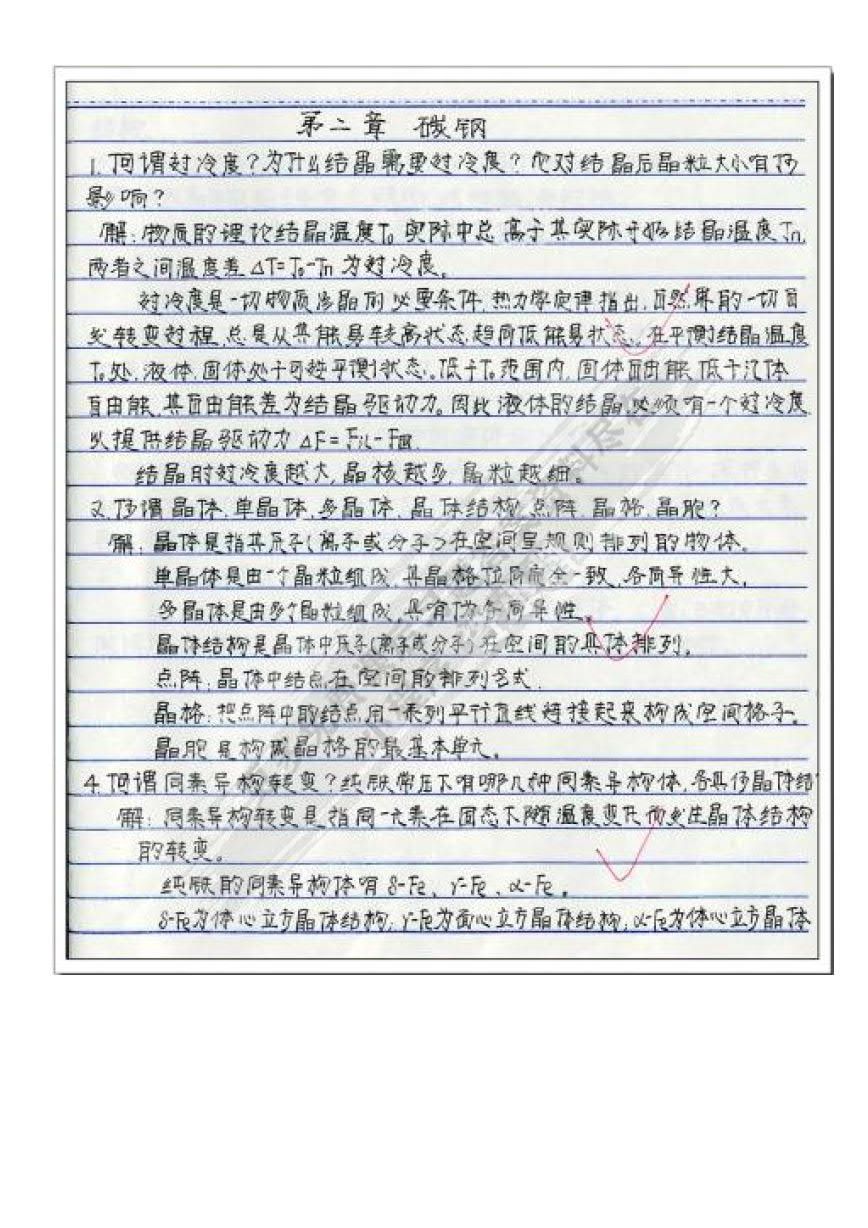 第二章 碳钢
1.何谓过冷度?为什么结晶需要过冷度?它对结晶后晶粒大小有何
影响?
解:物质的理论结晶温度T₀实际中总高于其实际开始结晶温度Tn,
两者之间温度差ΔT=T₀-Tn为过冷度。
过冷度是一切物质结晶的必要条件,热力学定律指出,自然界的一切自
发转变过程,总是从其能量较高状态趋向低能量状态。在平衡结晶温度
T₀处,液体,固体处于可逆平衡状态。低于T₀范围内,固体自由能低于液体
自由能,其自由能差为结晶驱动力。因此液体的结晶必须有一个过冷度
以提供结晶驱动力ΔF=F液-F固.
结晶时过冷度越大,晶核越多,晶粒越细。
2.何谓晶体,单晶体,多晶体,晶体结构,点阵,晶格,晶胞?
解:晶体是指其原子(离子或分子)在空间呈规则排列的物体。
单晶体是由一个晶粒组成,其晶格位向完全一致,各向异性大,
多晶体是由多个晶粒组成,具有伪各向异性。
晶体结构是晶体中原子(离子或分子)在空间的具体排列.
点阵:晶体中结点在空间的排列方式.
晶格:把点阵中的结点用一系列平行直线连接起来构成空间格子.
晶胞是构成晶格的最基本单元.
4.何谓同素异构转变?纯铁常压下有哪几种同素异构体,各具何晶体结
解:同素异构转变是指同一元素在固态下随温度变化而发生晶体结构
的转变。
纯铁的同素异构体有δ-Fe、γ-Fe、α-Fe。
δ-Fe为体心立方晶体结构;γ-Fe为面心立方晶体结构;α-Fe为体心立方晶体